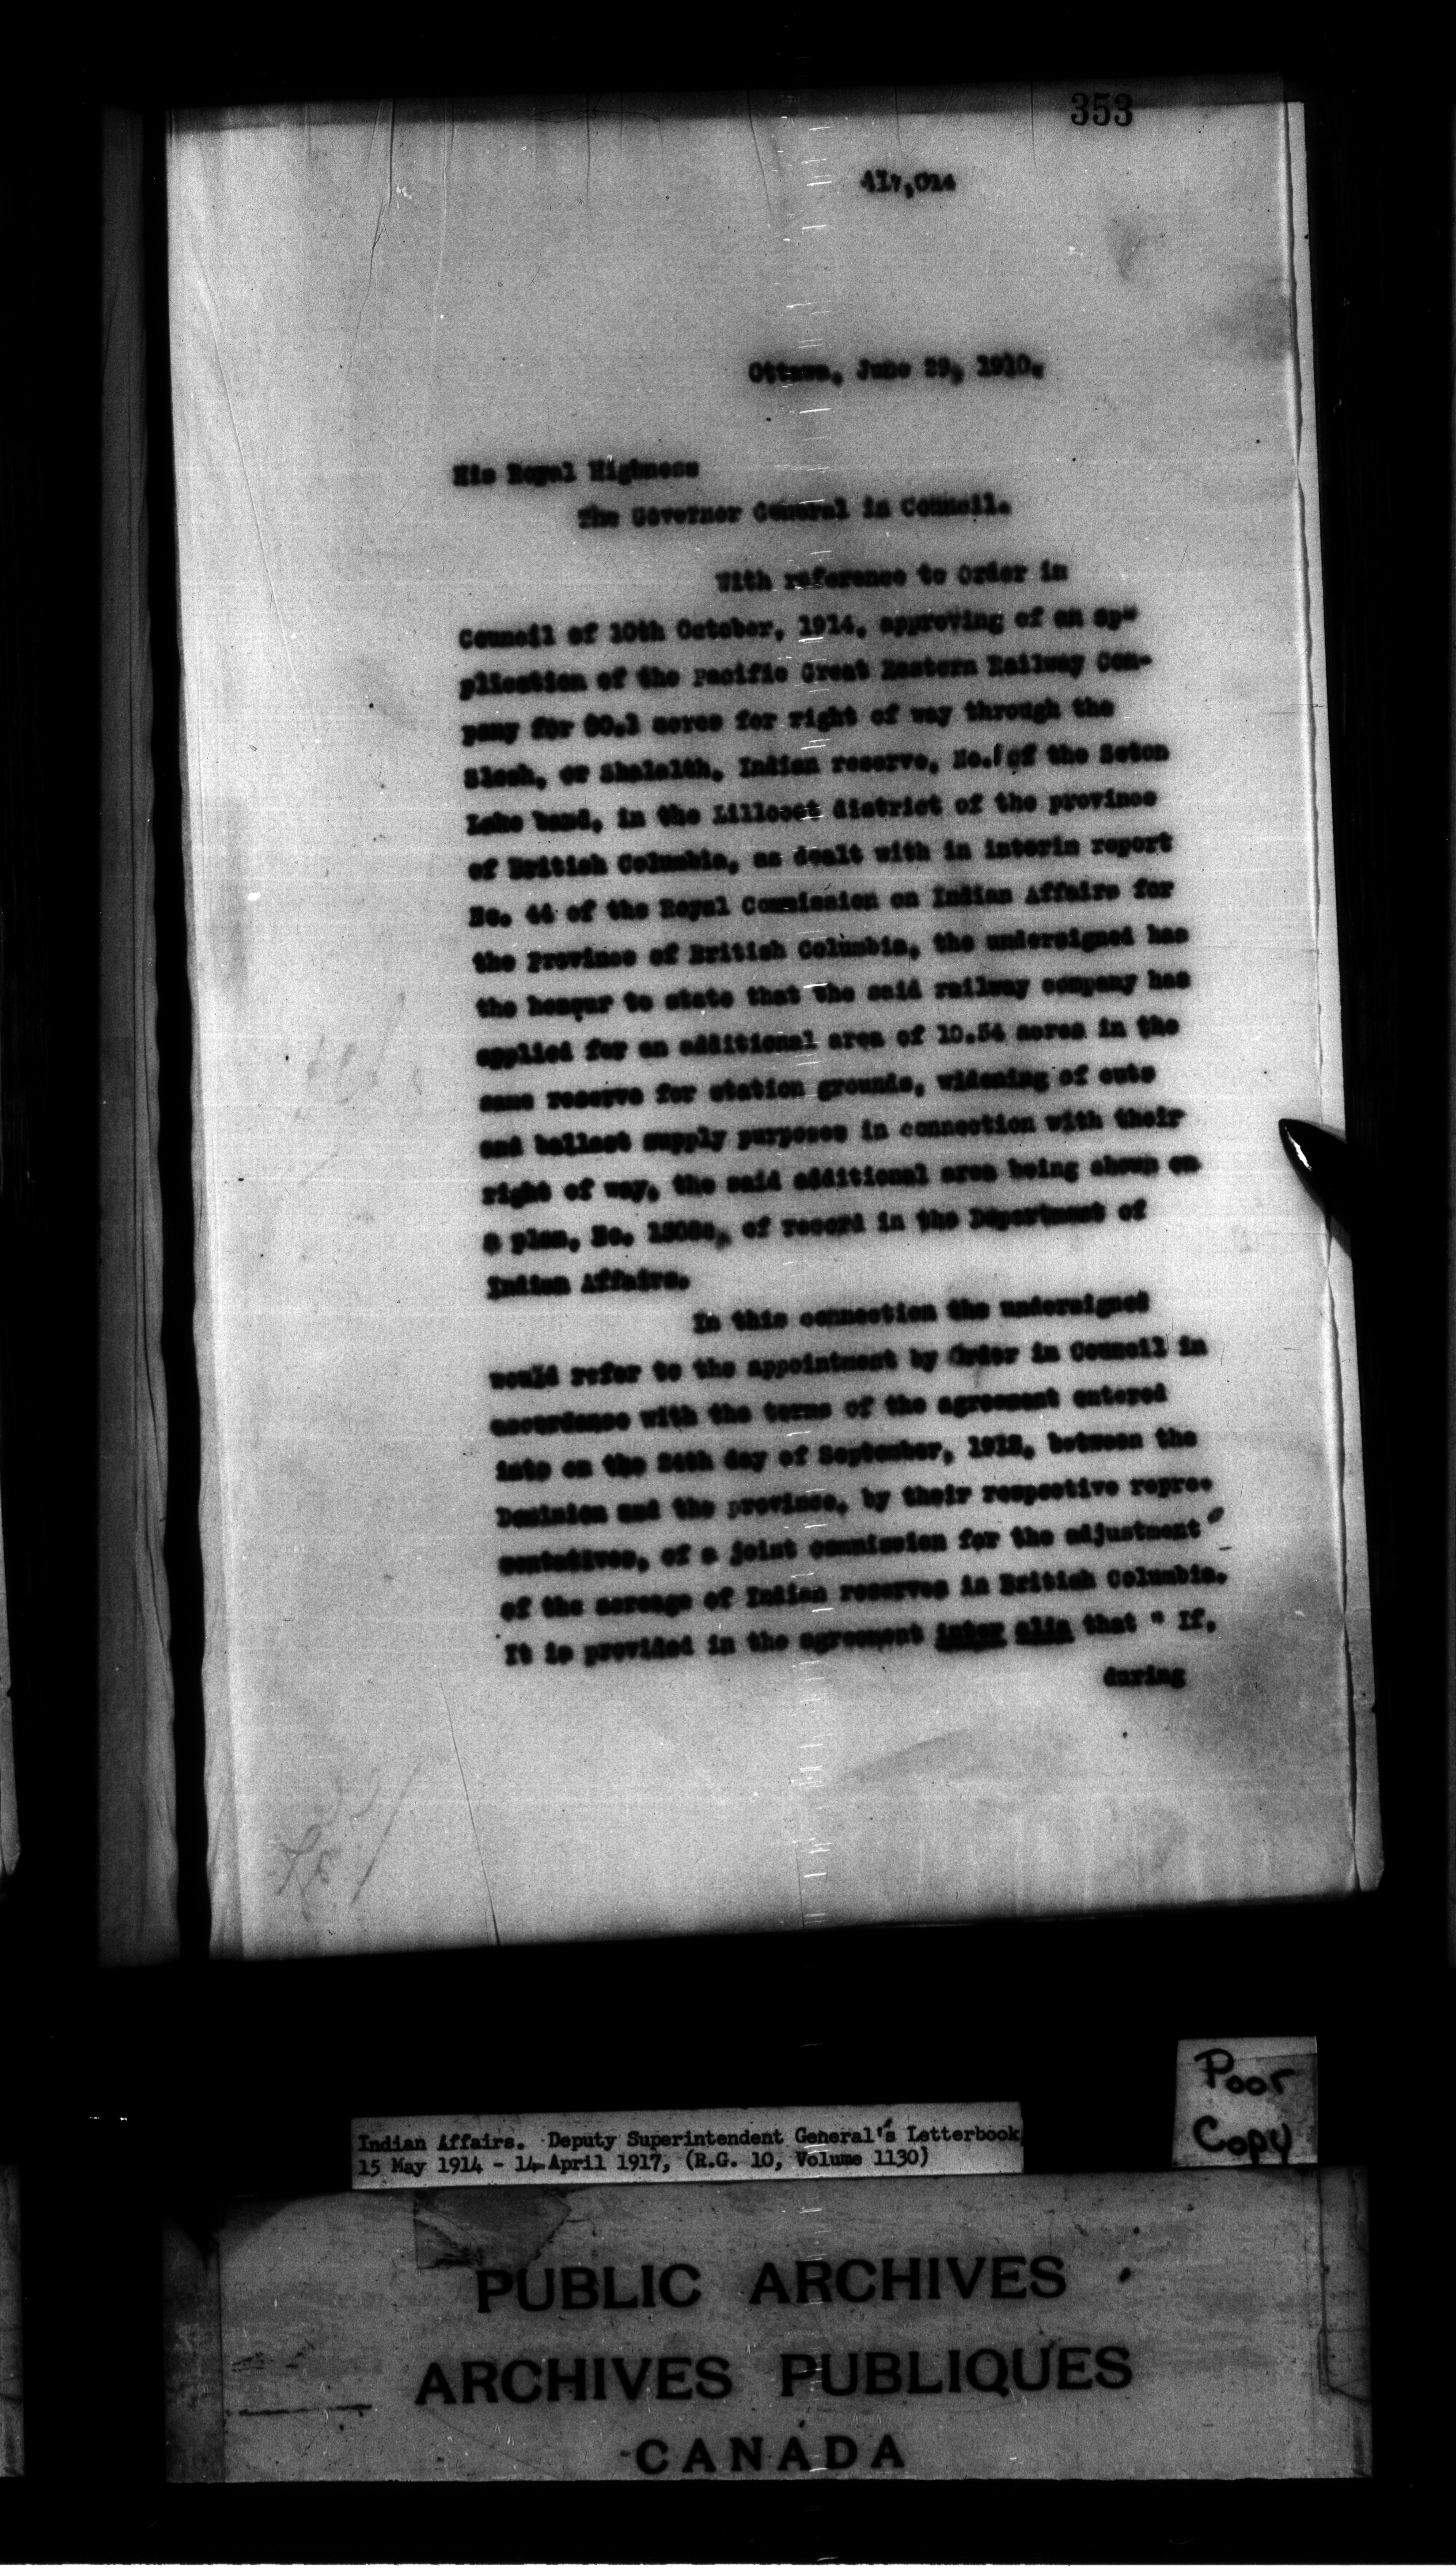 353
417,014
Ottawa, June 29, 1910.
His Royal Highness
The Governor General in Council.
With reference to Order in
Council of 10th October, 1914, approving of an ap-
plication of the Pacific Great Eastern Railway Com-
pany for acres for right of way through the
Slosh, or Shalalth, Indian reserve, No. 1 of the Seton
Lake band, in the Lillooet district of the province
of British Columbia, as dealt with in interim report
No. 44 of the Royal Commission on Indian Affairs for
the Province of British Columbia, the undersigned has
the honour to state that the said railway company has
applied for an additional area of 10.54 acres in the
same reserve for station grounds, widening of cuts
and ballast supply purposes in connection with their
right of way, the said additional area being shown on
a plan, No. of record in the Department of
Indian Affairs.
In this connection the undersigned
would refer to the appointment by Order in Council in
accordance with the terms of the agreement entered
into on the 24th day of September, 1912, between the
Dominion and the province, by their respective repre-
sentatives, of a joint commission for the adjustment
of the acreage of Indian reserves in British Columbia.
It is provided in the agreement inter alia that " If,
during
Poor
Copy
Indian Affairs. Deputy Superintendent General's Letterbook
15 May 1914 - 14 April 1917, (R.G. 10, Volume 1130)
PUBLIC ARCHIVES
ARCHIVES PUBLIQUES
CANADA